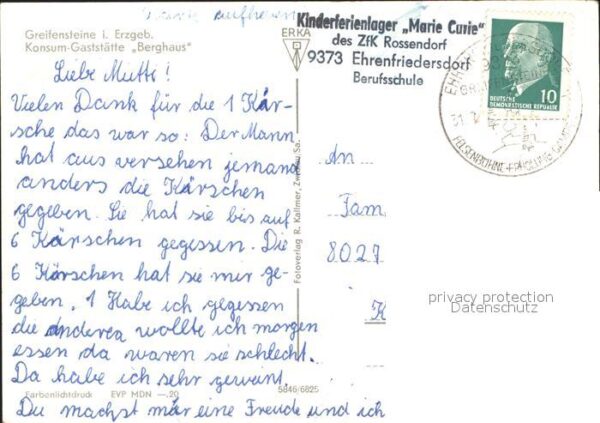 aufheben
Greifensteine i. Erzgeb.
Konsum-Gaststätte „Berghaus"
ERKA
Kinderferienlager „Marie Curie"
des ZfK Rossendorf
9373 Ehrenfriedersdorf
Berufsschule
DEUTSCHE
DEMOKRATISCHE REPUBLIK
10
31.7
FELSENBÜHNE-ERHOLUNG
Liebe Mutti!
Vielen Dank für die 1 Kär-
sche das war so: Der Mann
hat aus versehen jemand
anders die Kärschen
gegeben. Sie hat sie bis auf
6 Kärschen gegessen. Die
6 Kärschen hat sie mir ge-
geben. 1 Habe ich gegessen
die anderen wollte ich morgen
essen da waren sie schlecht.
Da habe ich sehr geweint.
Du machst mär eine Freude und ich
An
Fam
8027
K
Fotoverlag R. Kallmer, Zwickau Sa.
privacy protection
Datenschutz
Farbenlichtdruck EVP MDN —.20
5846/6825